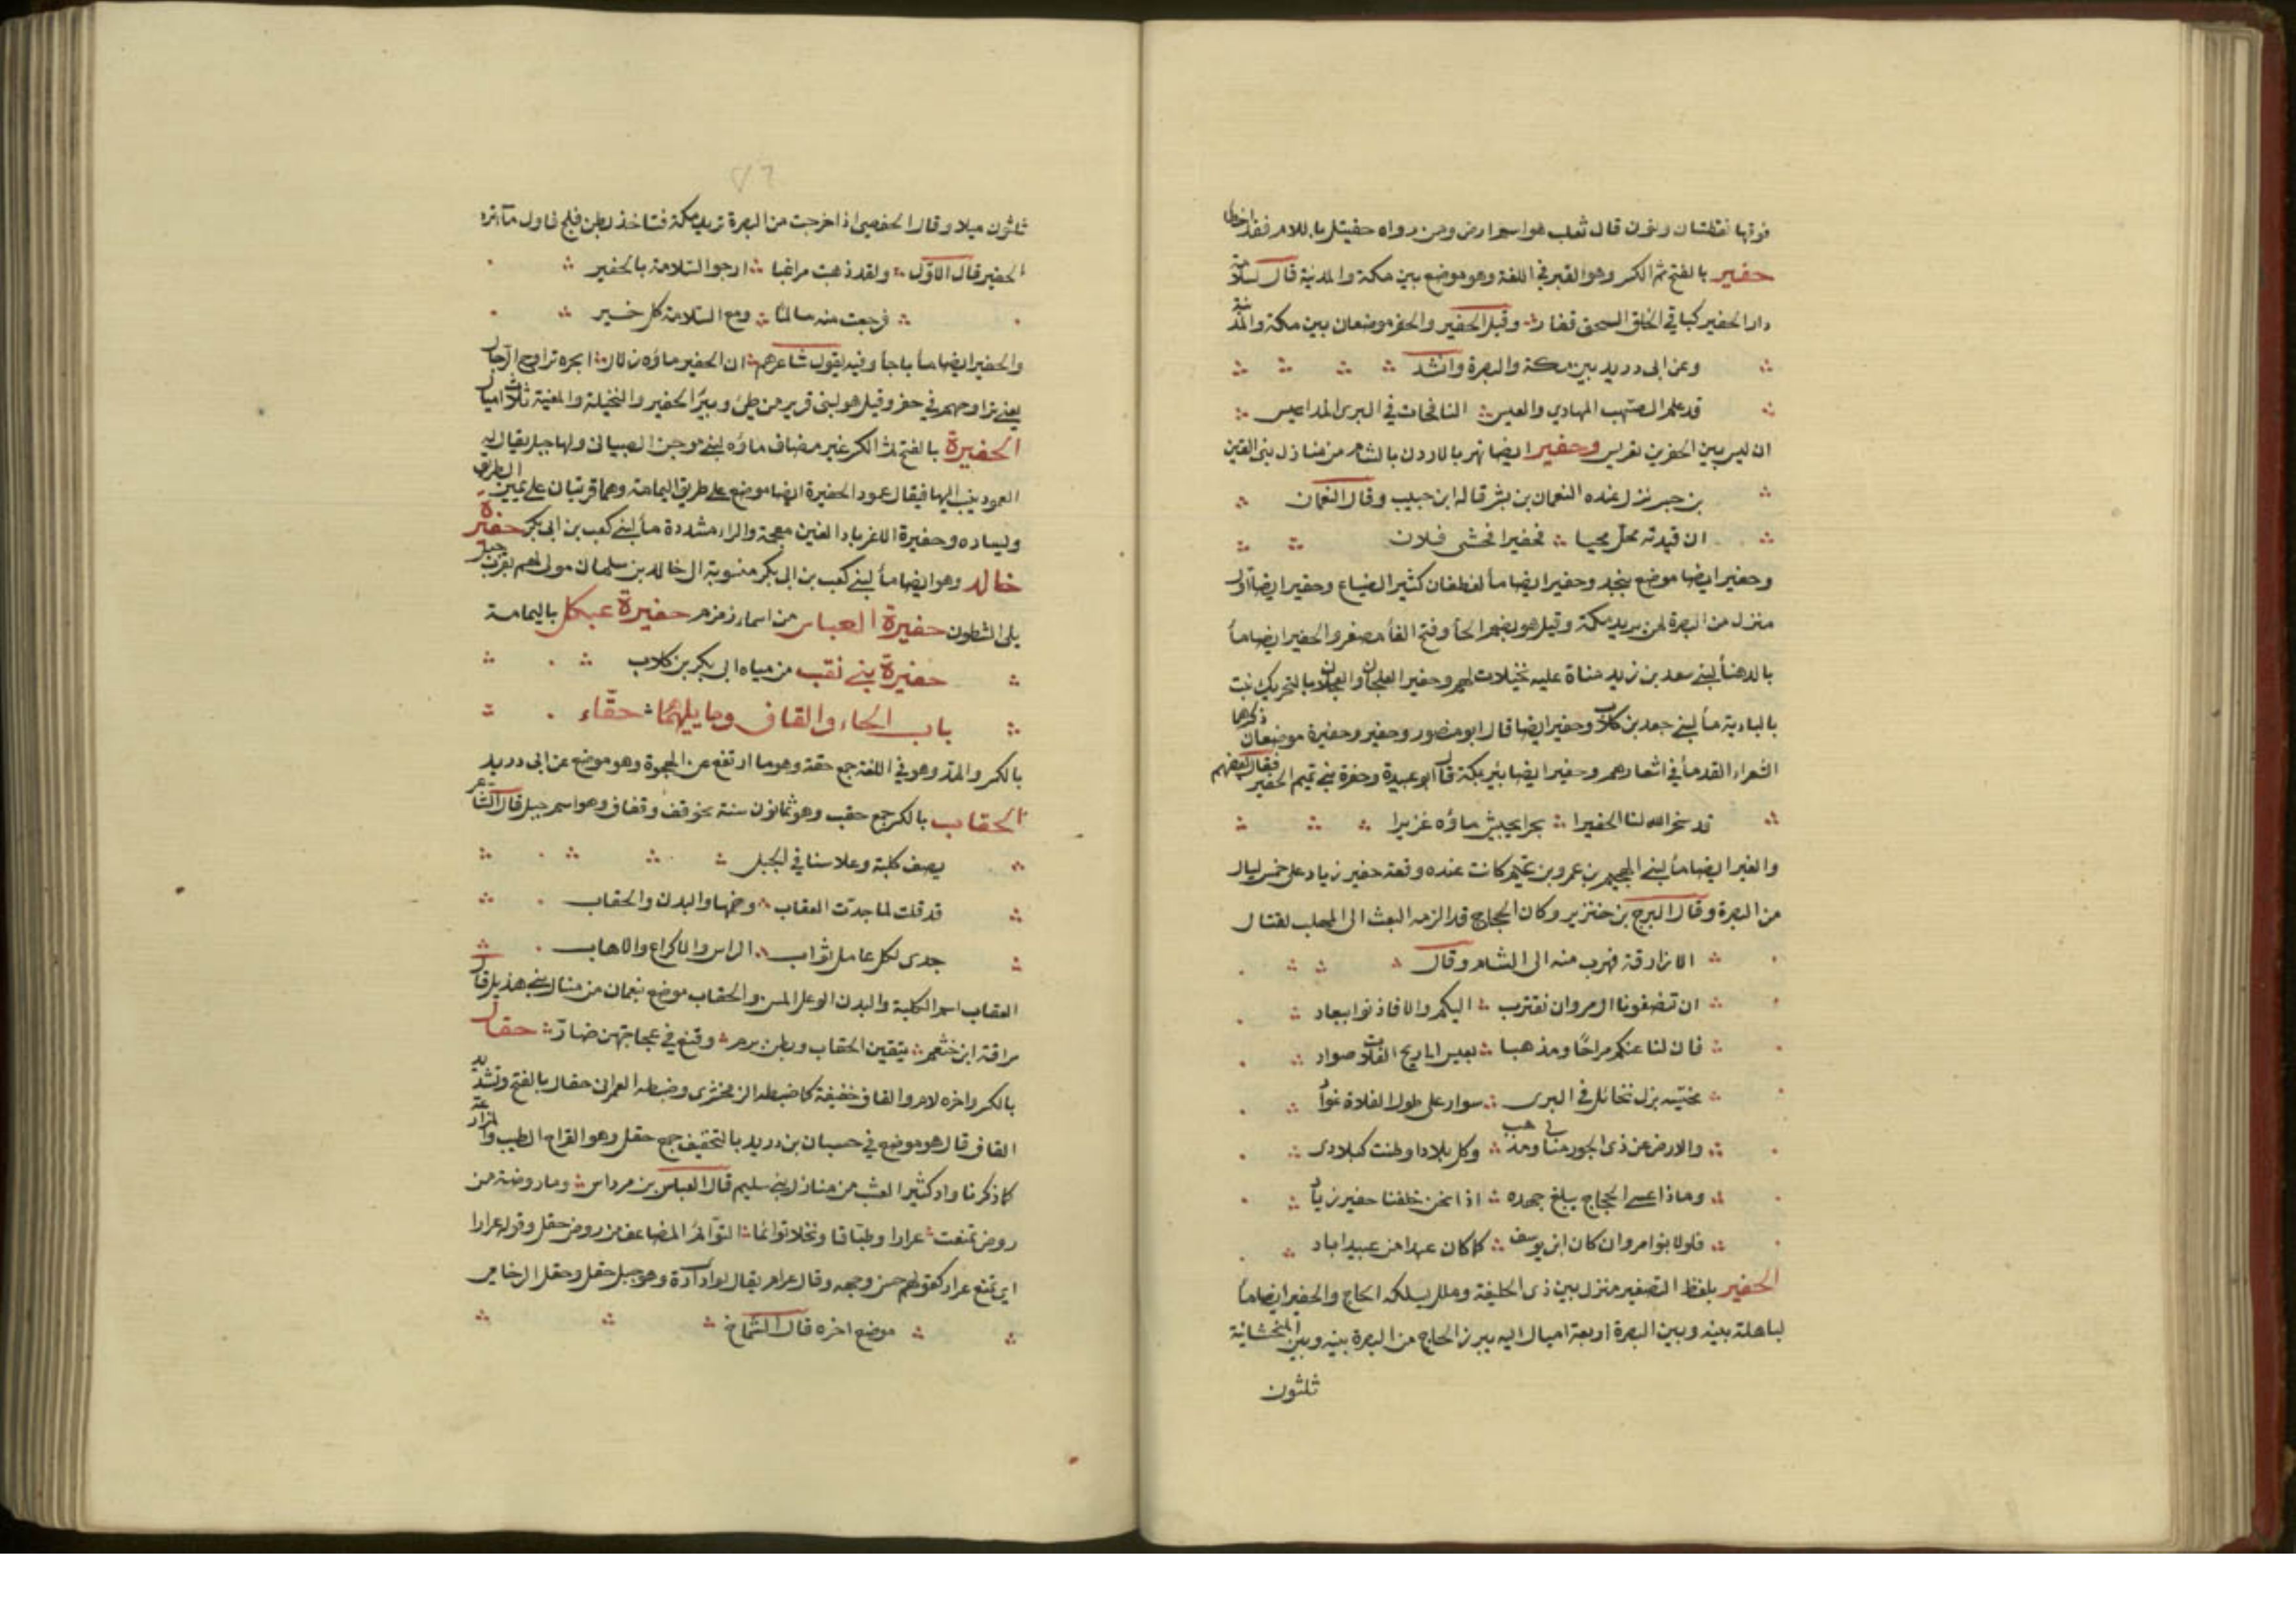 فوقها نقطتان ونون قال ثعلب هو اسم ارض ومن رواه حفيتل باللام فقد اخطا
حفير بالفتح ثم الكسر وهو القبر في اللغة وهو موضع بين مكة والمدينة قال
دار الحفير كباقي الخلق السحق قفار وقيل الحفير والحفر موضعان بين مكة والمدينة
وعن ابى دريد بين مكة والبصرة وانشد
قد علم الصهب المهادي والعيس النافخات في البرى المداعيس
ان ليس بين الحفرين تعريس وحفير ايضا نهر بالاردن بالشام من منازل بنى القين
بن جسر نزل عنده النعمان بن بشر قاله ابن حبيب وقال النعمان
ان قيدته تحل محيا فحفيرا فحشى فلان
وحفير ايضا موضع بنجد وحفير ايضا مأ لغطفان كثير الضياع وحفير ايضا اول
منزل من البصرة لمن يريد مكة وقيل هو بضم الحأ وفتح الفأ مصغر والحفير ايضا مأ
بالدهنأ لبنے سعد بن زيد مناة عليه نخيلات لهم وحفير العلجان والعلجان بالتحريك نبت
بالبادية مأ لبنے جعد بن كلاب وحفير ايضا قال ابو منصور وحفير وحفيرة موضعان ذكرهما
الشعراء القدمأ في اشعارهم وحفير ايضا بئر بمكة قال ابو عبيدة وحفرة بنے تميم الحفير فقال بعضهم
قد سخر الله لنا الحفيرا بحرا يجيش ماؤه غزيرا
والغير ايضا مأ لبنے الهجيم بن عمرو بن تميم كانت عنده وقعة حفير زياد على خمس ليال
من البصرة وقال البرج بن خنزير وكان الحجاج قد الزمه البعث الى المهلب لقتال
الازارقة فهرب منه الى الشام وقال
ان تنصفونا ال مروان نقترب اليكم والا فاذنوا ببعاد
فان لنا عنكم مراحًا ومذهبا بعيس الى ريح الفلات صواد
مخيسه بزل تخائل في البرى سوار على طول الفلاة غواد
والارض عن ذى الجور منأى ومذهب وكل بلاد اوطنت كبلادى
وماذا عسے الحجاج يبلغ جهده اذا نحن خلفنا حفير زياد
فلولا بنو امروان كان ابن يوسف كما كان عبدا من عبيد اياد
الحفير بلفظ التصغير منزل بين ذى الحليفة وملل يسلكه الحاج والحفير ايضا مأ
لباهلة بينه وبين البصرة اربعة اميال اليه يبرز الحاج من البصرة بينه وبين المنجشانية
ثلثون
٧٦
ثلثون ميلا وقال الحفصى اذا خرجت من البصرة تريد مكة فتاخذ بطن فلج فاول مأ ترد
الحفير قال الاوّل ولقد ذهبت مراغبا ارجو السّلامة بالحفير
فرجعت منه سالمًا ومع السّلامة كل خير
والحفير ايضا مأ باجأ وفيه يقول شاعرهم ان الحفير ماؤه زلال ابحره تراوح الرّجال
يعنے تراوحهم في حفر وقيل هو لبنى قرير من طئ وبين الحفير والنخيلة والمغيثة ثلاث اميال
الحفيرة بالفتح ثم الكسر غير مضاف ماؤه لبنے موجن الضبيانى ولها جبل يقال له
العمود ينسب اليها فيقال عمود الحفيرة ايضا موضع على طريق اليمامة وهما قريتان على يمين الطريق
ويساره وحفيرة الاغر بالغين معجمة والراء مشددة مأ لبنے كعب بن ابى بكر حفيرة
خالد وهو ايضا مأ لبنے كعب بن ابى بكر منسوبة الى خالد بن سلمان مولى لهم بقرب جبل
يلى الشطون حفيرة العباس من اسماء زمزم حفيرة عبكل باليمامة
حفيرة بنے نقب من مياه ابى بكر بن كلاب
باب الحاء والقاف وما يليهما حقّاء
بالكسر والمدّ وهو في اللغة جمع حقة وهو ما ارتفع عن الهجوة وهو موضع عن ابى دريد
الحقاب بالكسر جمع حقب وهو ثمانون سنة نحو قف وقفاف وهو اسم جبل قال الشّاعر
يصف كلبة وعلا سنا في الجبل
قد قلت لما جدّت العقاب وضمها والبدن والحقاب
جدى لكل عامل ثواب الراس والاكراع والاهاب
العقاب اسم الكلبة والبدن الوعل المسن والحقاب موضع بنعمان من منازل بنے هذيل قال
سراقة ابن خثعم يتقين الحقاب وبطن برم وقنع في عجاجتهن ضارّ حقال
بالكسر واخره لام والقاف خفيفة كما ضبطه الزمخشرى وضبطه العمرانى حقال بالفتح وتشديد
القاف قال هو موضع في حسبان بن دريد بالتخفيف جمع حقل وهو القراح الطيب والمزارعة
كما ذكرنا واد كثير العشب من منازل بنے سليم قال العباس بن مرداس وما روضة من
روض تمنعت عرارا وطبّاقا ونخلا توائما التوّام المضاعف من روض حقل وقوله عرارا
اى تمتع عرار كقولهم حسن وجهه وقال عرام يقال لوادى آرة وهو جبل حقل وحقل الرخامى
موضع اخره قال الشّماخ